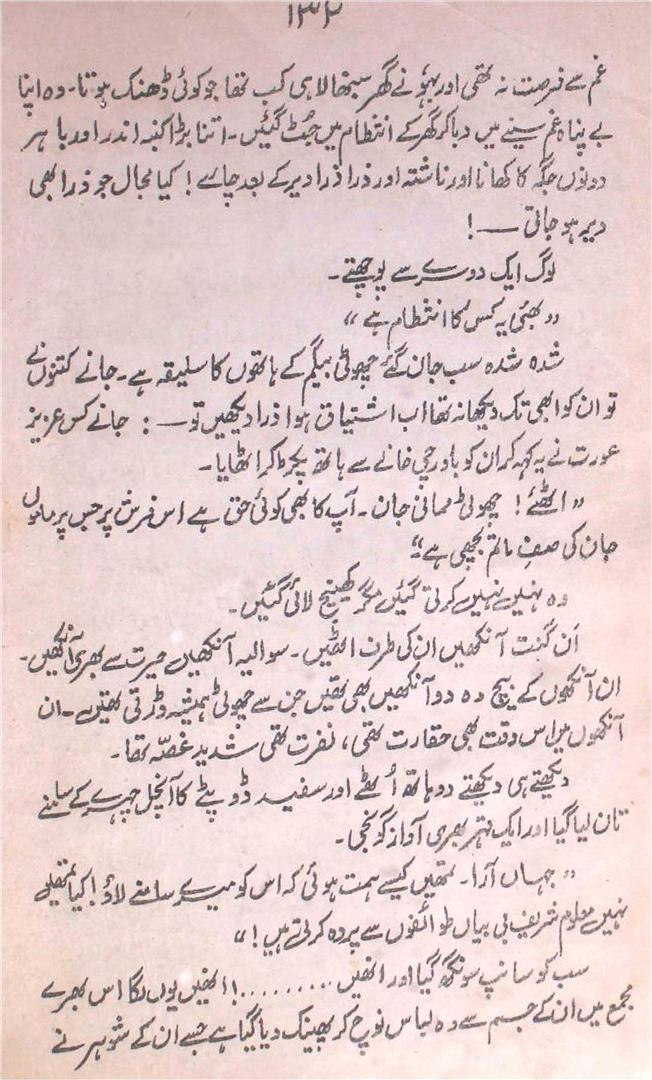 ۱۳۲
غم سے فرصت نہ تھی اور بہو نے گھر سنبھالا ہی کب تھا جو کوئی ڈھنگ ہوتا۔ وہ اپنا
بے پناہ غم سینے میں دبا کر گھر کے انتظام میں جُٹ گئیں۔ اتنا بڑا کنبہ اندر اور باہر
دونوں جگہ کا کھانا اور ناشتہ اور ذرا ذرا دیر کے بعد چائے! کیا مجال جو ذرا بھی
دیر ہو جاتی —!
لوگ ایک دوسرے سے پوچھتے۔
"بھئی یہ کس کا انتظام ہے"
شدہ شدہ سب جان گئے چھوٹی بیگم کے ہاتھوں کا سلیقہ ہے۔ جانے کتنوں نے
تو ان کو ابھی تک دیکھا نہ تھا اب اشتیاق ہوا ذرا دیکھیں تو —: جانے کس عزیز
عورت نے یہ کہہ کر ان کو باورچی خانے سے ہاتھ پکڑ کر اٹھایا۔
"اٹھئے! چھوٹی ممانی جان۔ آپ کا بھی کوئی حق ہے اس فرش پر جس پر ماموں
جان کی صفِ ماتم بچھی ہے"
وہ نہیں نہیں کرتی گئیں مگر کھینچ لائی گئیں۔
اَن گنت آنکھیں ان کی طرف اٹھیں۔ سوالیہ آنکھیں حیرت سے بھری آنکھیں۔
ان آنکھوں کے بیچ وہ دو آنکھیں بھی تھیں جن سے چھوٹی ہمیشہ ڈرتی تھیں۔ ان
آنکھوں میں اس وقت بھی حقارت تھی، نفرت تھی شدید غصّہ تھا۔
دیکھتے ہی دیکھتے دو ہاتھ اُٹھے اور سفید ڈوپٹے کا آنچل چہرے کے سامنے
تان لیا گیا اور ایک قہر بھری آواز گونجی۔
"جہاں آرا۔ تمھیں کیسے ہمت ہوئی کہ اس کو میرے سامنے لاؤ! کیا تمھیں
نہیں معلوم شریف بی بیاں طوائفوں سے پردہ کرتی ہیں!"
سب کو سانپ سونگھ گیا اور انھیں .........! انھیں یوں لگا اس بھرے
مجمع میں ان کے جسم سے وہ لباس نوچ کر پھینک دیا گیا ہے جسے ان کے شوہر نے